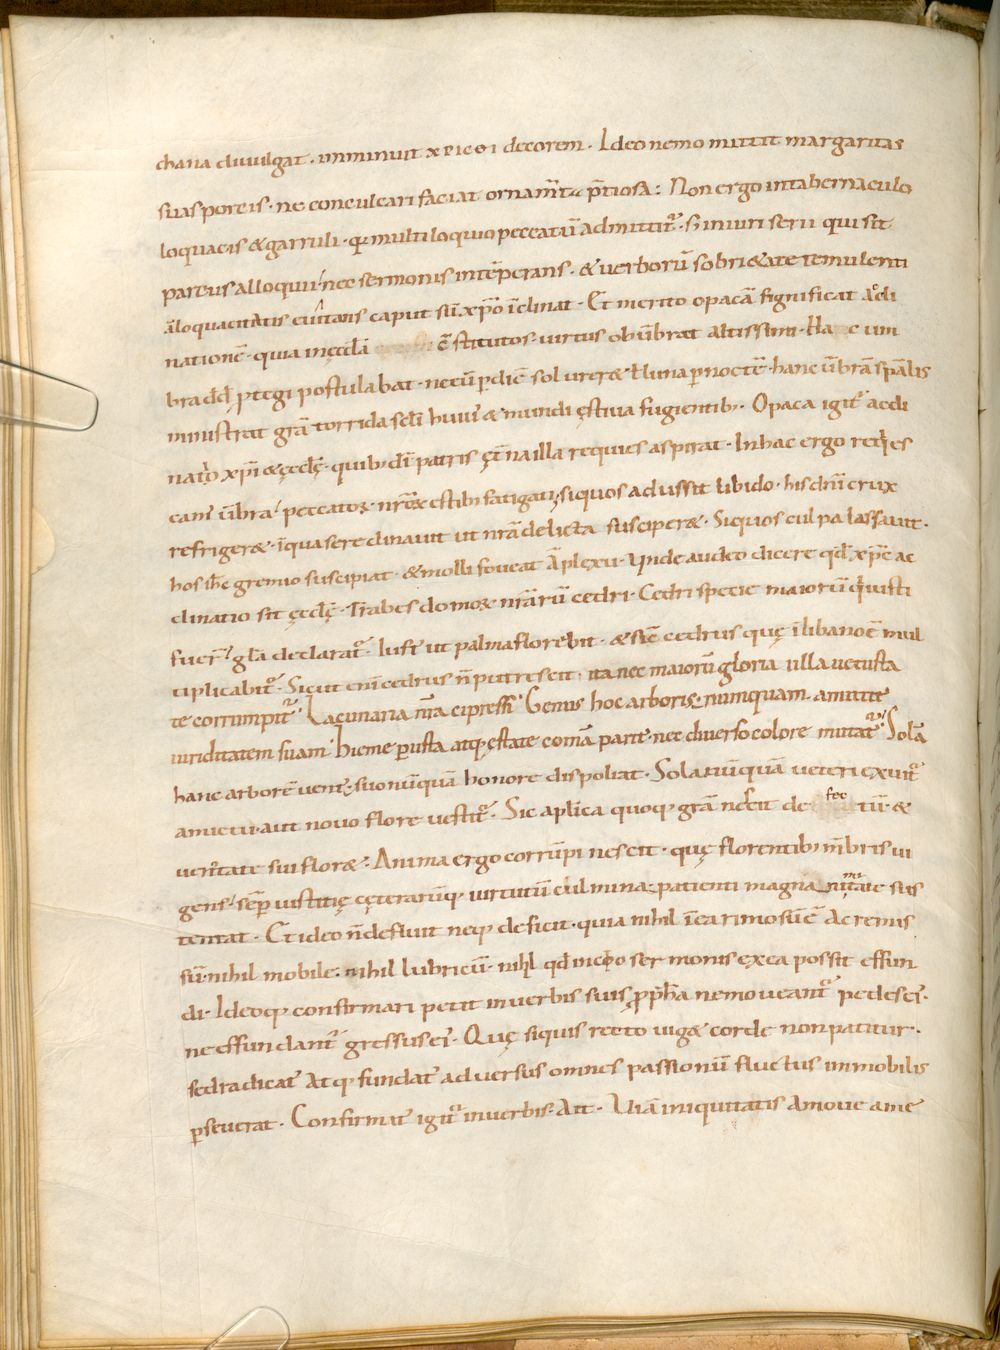 chana diuulgat · imminuit xpieoi decorem · Ideo nemo mittit margaritas
suas porcis · ne conculcari faciat ornam̄ta p̄tiosa : Non ergo in tabernaculo
loquacis & garruli · qa multiloquio peccatū admittit᷑ · s; in iuri serii qui sit
parcus alloquii nec sermonis intēperans · & uerborū sobri&ate temulenti
ā loquacitatis euitans caput suū xp̄o īclinat · Et merito opacā significat acdi
nationē · quia in ęccła cōstitutos uirtus obūbrat altissimi · Hanc um
bra dd̄ ptegi postulabat · ne eū p diē sol urer& ł luna p noctē · hanc ūbrā sp̄alis
ministrat grā torrida scłi huius & mundi ęstiua fugientib; · Opaca igit᷑ accli
natio xp̄i & ęccłę · quib; dī patris ęt̄na illa requies aspirat · In hac ergo reqies
cam̄ ūbra peccator nr̄ &estibi fatigati siquos adussit libido · his dn̄i crux
refriger& · ī qua se reclinauit ut nr̄a delicta susciper& · Siquos culpa lassauit ·
hos ih̄c gremio suscipiat · & molli foueat āplexu · Unde audeo dicere qd̄ xp̄c ac
clinatio sit ęccłę · Trabes domoꝝ nr̄arū cedri · Cedri specie maiorū q iusti
fuer̄ gła declarat᷑ · Iust̄ ut palma florebit · & sic̄ cedrus quę ī libano ē mul
tiplicabit᷑ · Sicut enī cedrus n̄ putrescit · ita nec maiorū gloria ulla uetusta
te corrumpit᷑ · Lacunaria nr̄a cipressi · Genus hoc arboris numquam amittit
uiriditatem suam · hieme p usta atq; ęstate comā parit · nec diuerso colore mutat᷑ · Solā
hanc arborē uent᷑ suo nūquā honore dispoliat · Sola nūquā ueteri exuit᷑
amictu · aut nouo flore uestit᷑ · Sic aplica quoq; grā nescit defectū · &
ueritate sui flor& · Anima ergo corrūpi nescit · quę florentib; mēbris ui
gens sēp iustitię cęterarūq; uirtutū culmina patienti magnanimitate sus
tentat · Et ideo n̄ defluit neq; deficit · quia nihil ī ea rimosū ē Acremis
sū · nihil mobile · nihil lubricū · nihil qd̄ in cōpo sermonis ex ea possit effun
di · Ideoq; confirmari petit in uerbis suis pph̄a ne moueant᷑ pedes ei᷑ ·
ne effundant᷑ gressus ei᷑ · Quę siquis recto uig& corde non patitur ·
sed radicat᷑ atq; fundat᷑ aduersus omnes passionū fluctus immobilis
pseuerat · Confirmat᷑ igit᷑ in uerbis · Ait · Uiā iniquitatis amoue a me